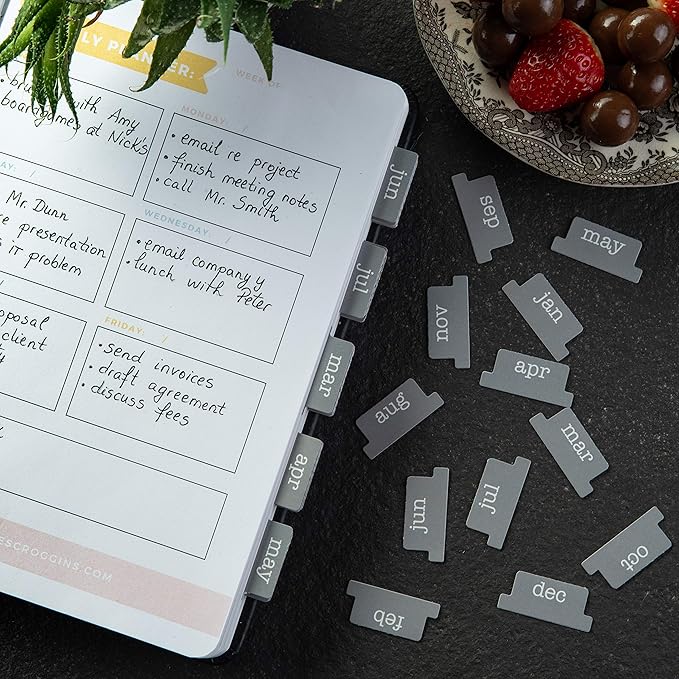 LY PLANNER:
WEEK OF:
with Amy
boardgames at Nick's
MONDAY: /
• email re project
• finish meeting notes
• call Mr. Smith
AY: /
Mr. Dunn
re presentation
s IT problem
WEDNESDAY: /
• email company y
• lunch with Peter
oposal
client
FRIDAY: /
• send invoices
• draft agreement
• discuss fees
ESCROGGINS.COM
jun
jul
mar
apr
may
sep
may
nov
jan
apr
aug
mar
jun
jul
oct
dec
feb